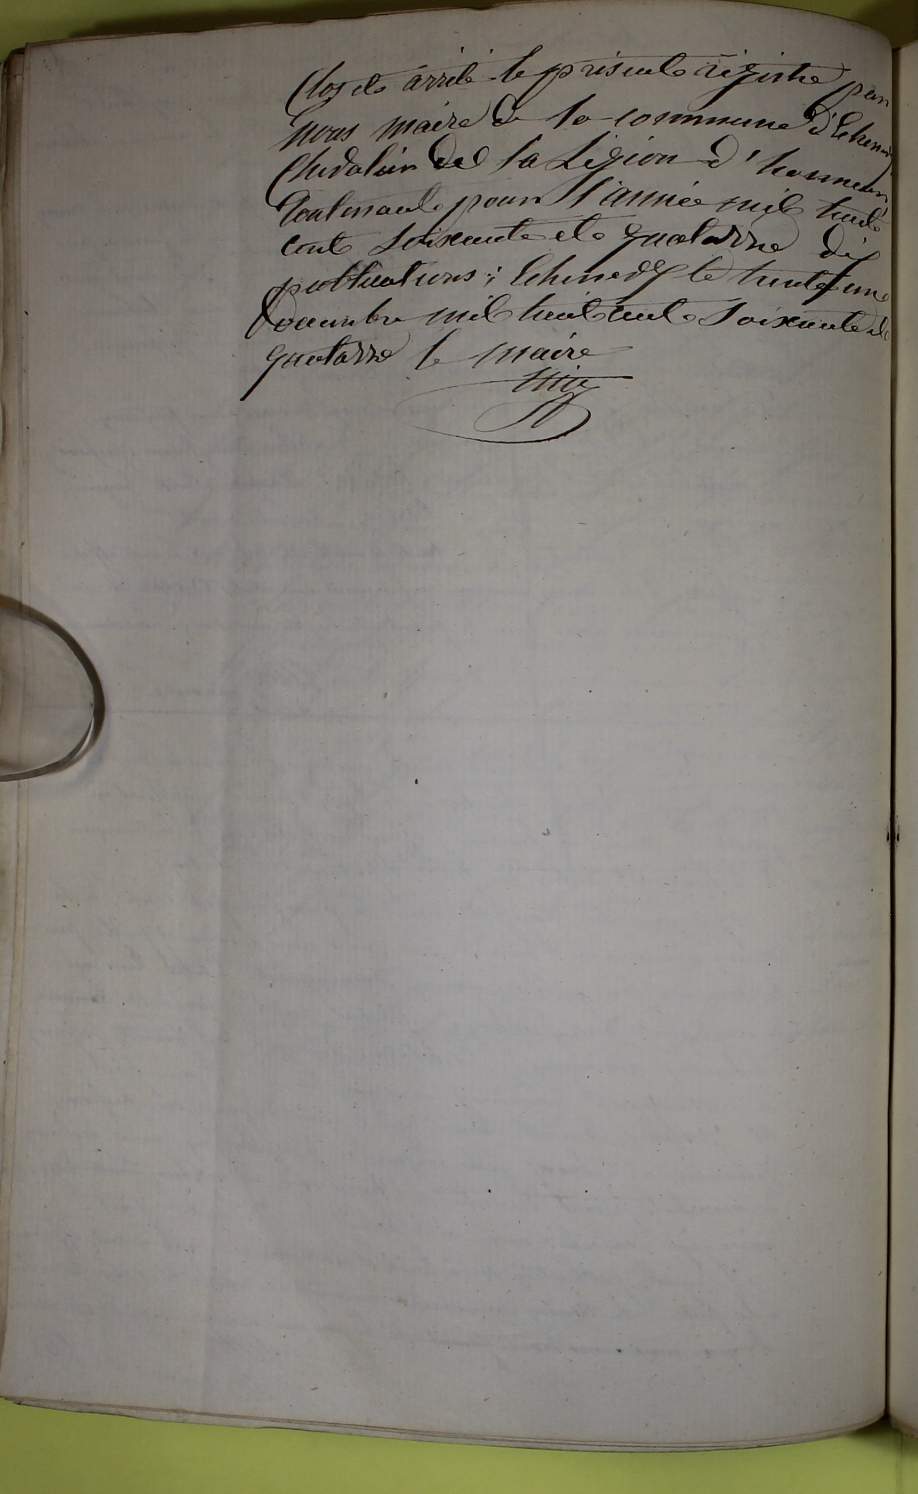 Clos et arrêté le présente régistre par
nous maire de la commune d'Echenedy
Chevalier de la Légion d'honneur
Contenant pour l'année mil huit
cent soixante et quatorze dix
publications ; Echenedy le trente une
Decembre mil huit cent soixante et
quatorze le maire